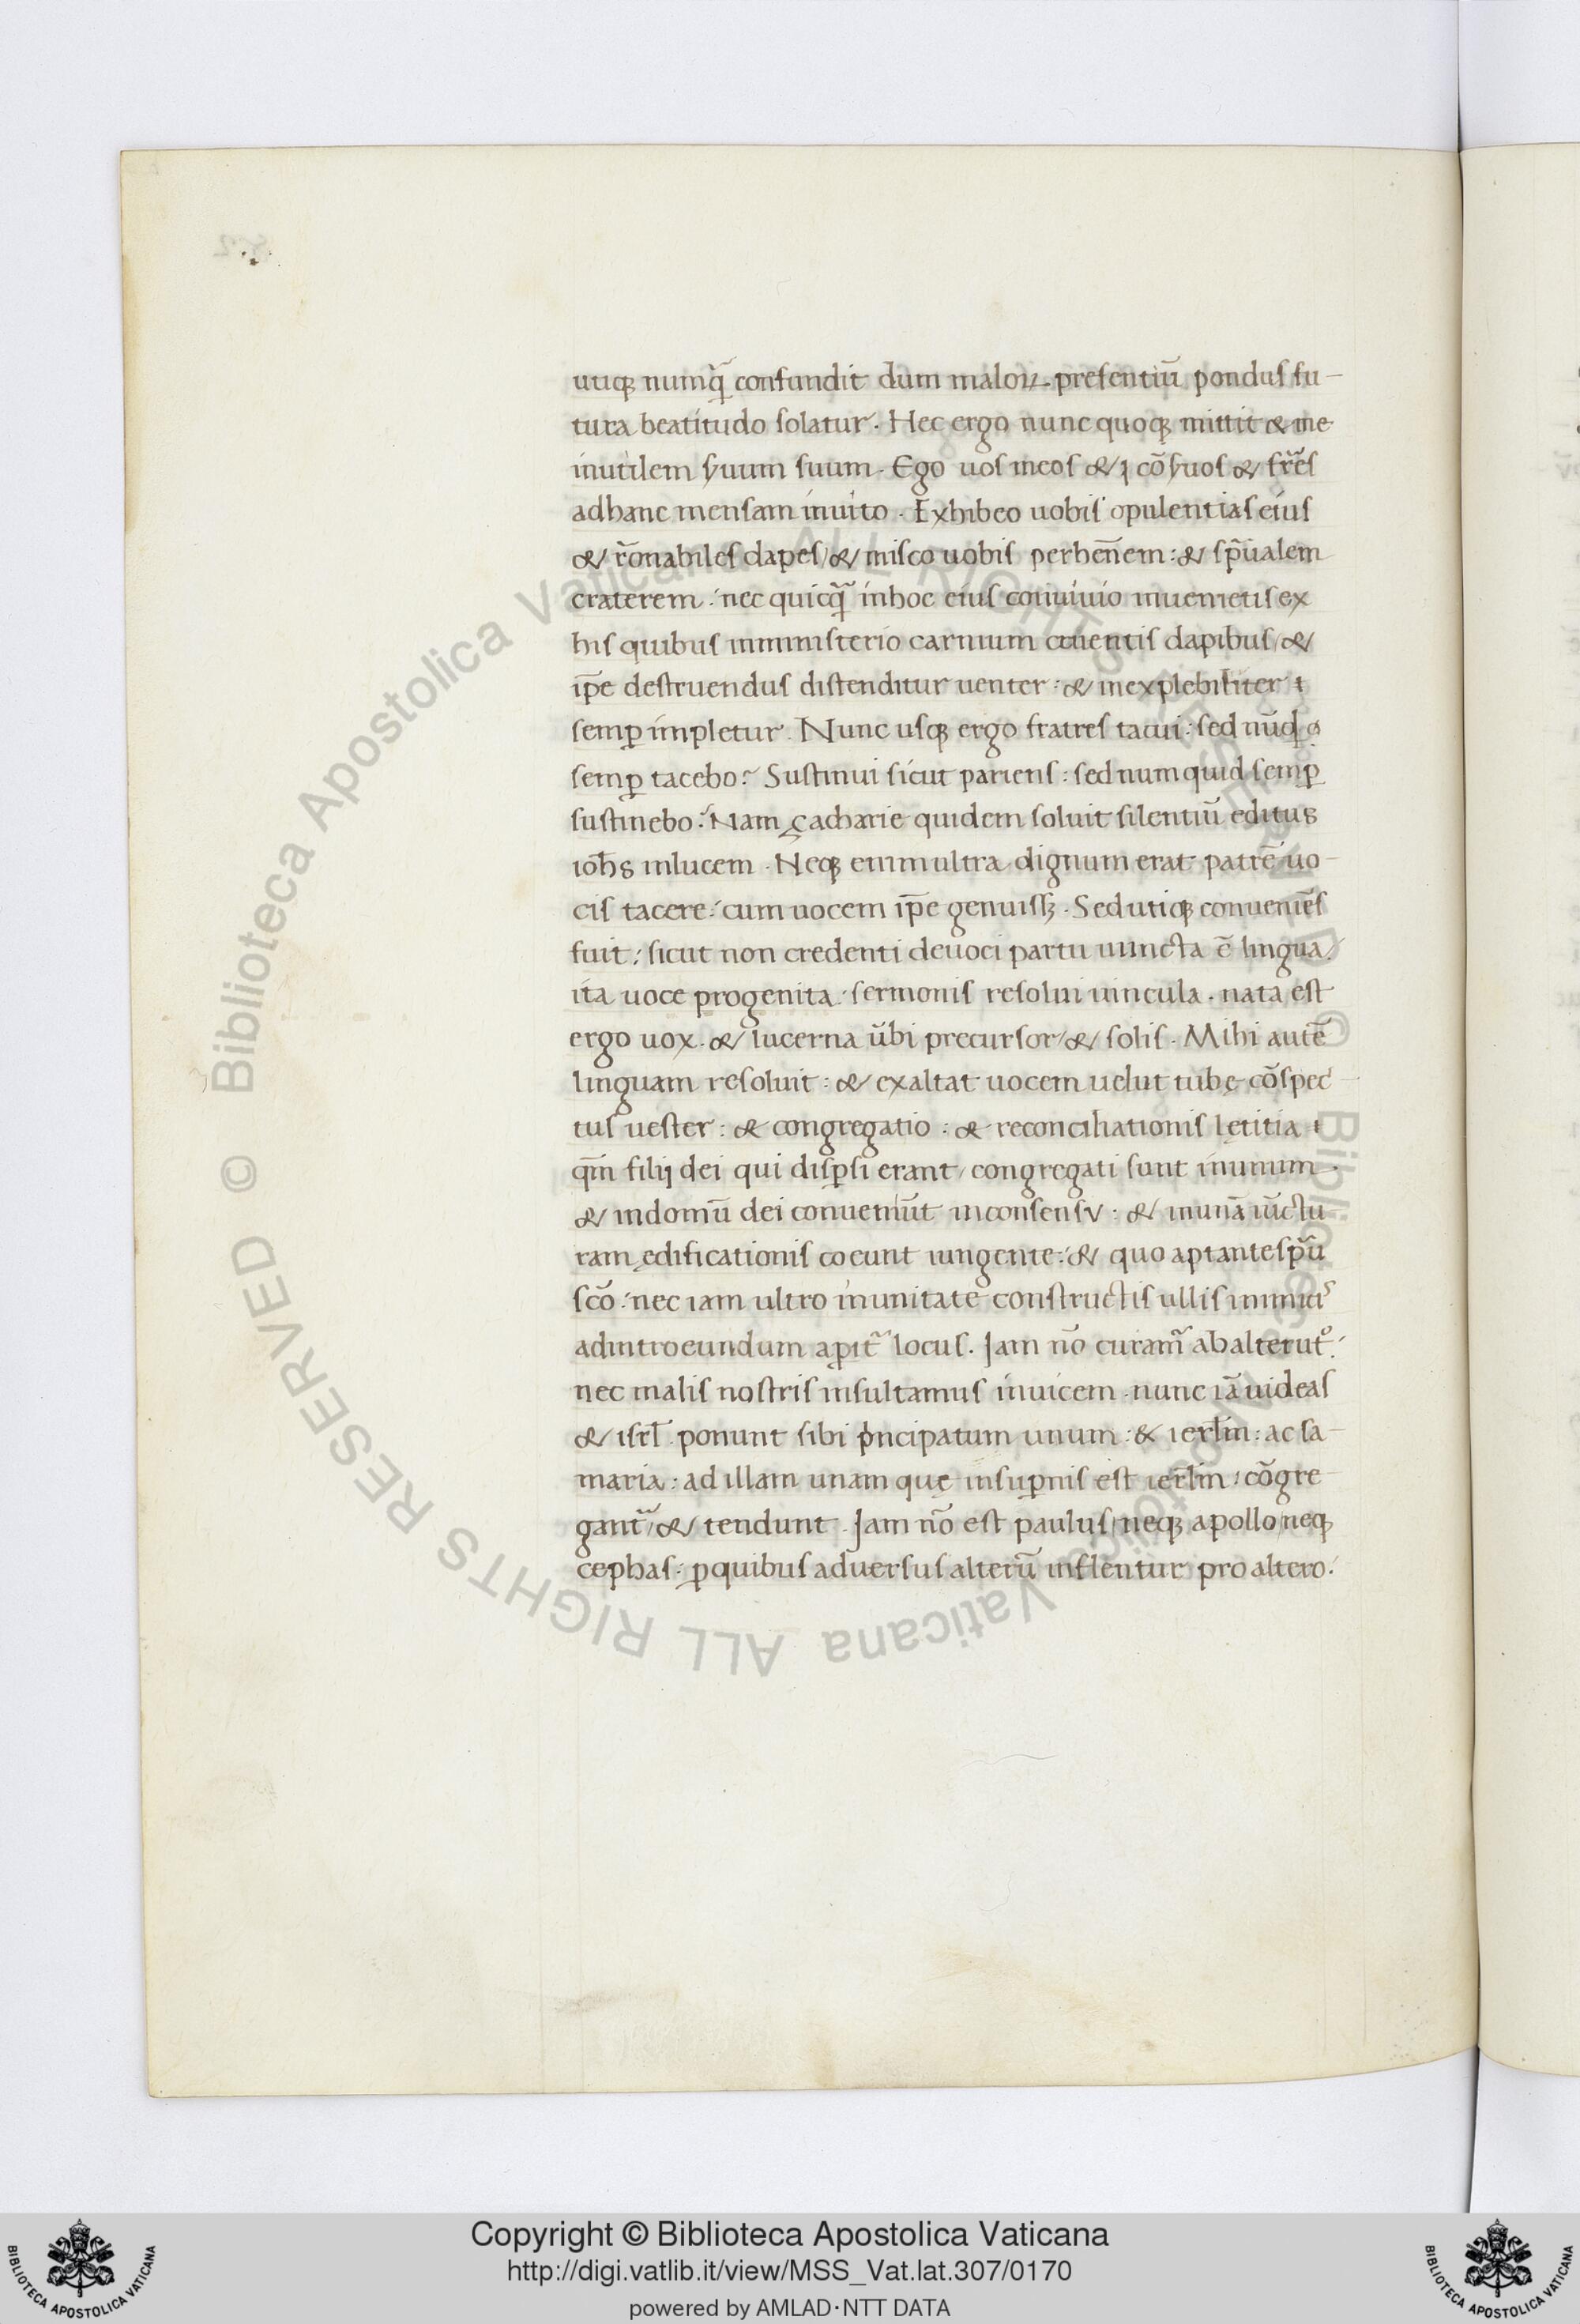 utiqꝫ numq̃ confundit dum maloꝝ presentiũ pondus fu-
tura beatitudo solatur. Hec ergo nunc quoqꝫ mittit & me
inutilem s̾uum suum. Ego uos meos & cõs̾uos & fr̃es
ad hanc mensam inuito. Exhibeo uobis opulentias eius
& r̃onabiles dapes / & misco uobis perheñem : & sp̃ualem
craterem : nec quicq̃ in hoc eius conuiuio inuenietis ex
his quibus in ministerio carnium cruentis dapibus / &
ip̃e destruendus distenditur uenter : & inexplebiliter
semꝑ impletur. Nunc usqꝫ ergo fratres tacui : sed nũqd
semꝑ tacebo? Sustinui sicut pariens : sed numquid semꝑ
sustinebo? Nam çacharie quidem soluit silentiũ editus
ioh̃s in lucem. Neqꝫ enim ultra dignum erat patrẽ uo-
cis tacere : cum uocem ip̃e genuissꝫ. Sed utiqꝫ conueniẽs
fuit : sicut non credenti de uoci partu uincta ẽ lingua /
ita uoce progenita : sermonis resolui uincula. nata est
ergo uox. & lucerna ũbi precursor / & solis. Mihi autẽ
linguam resoluit : & exaltat uocem uelut tubę cõspec-
tus uester : & congregatio : & reconciliationis lętitia
qm̃ filij dei qui disꝑsi erant / congregati sunt in unum.
& in domũ dei conueniũt in consensu : & in unã iũctu
ram ędificationis coeunt iungente : & quo aptante sp̃u
sc̃o : nec iam ultro in unitate constructis ullis inimicis
ad introeundum aꝑit̃ locus. Jam nõ curam̃ ab alterutº :
nec malis nostris insultamus inuicem. nunc iã uideas
& isrl̃ ponunt sibi pⁱncipatum unum : & ierl̃m : ac sa-
maria : ad illam unam quę in suꝑnis est ierl̃m : cõgre
gant̃ / & tendunt. Jam nõ est paulus / neqꝫ apollo / neqꝫ
cephas : ꝑ quibus aduersus alterũ inflentur pro altero :
Copyright © Biblioteca Apostolica Vaticana
http://digi.vatlib.it/view/MSS_Vat.lat.307/0170
powered by AMLAD·NTT DATA
BIBLIOTECA APOSTOLICA VATICANA
BIBLIOTECA APOSTOLICA VATICANA
© Biblioteca Apostolica Vaticana ALL RIGHTS RESERVED © Biblioteca Apostolica Vaticana ALL RIGHTS RESERVED